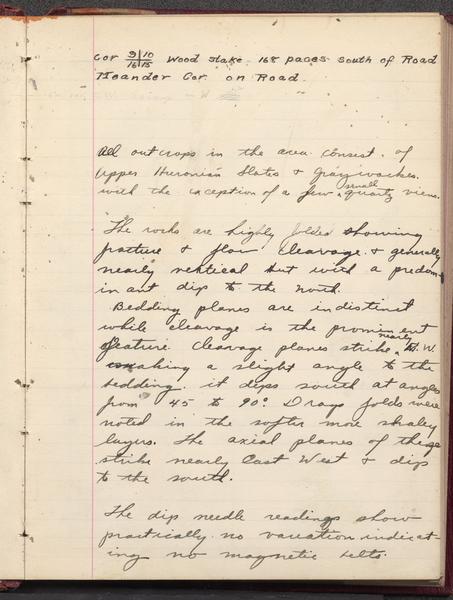 Cor 9|10 16|15 Wood Stake 168 paces South of Road
Meander Cor. on Road
All outcrops in the area consist of
Upper Huronian Slates & Graywackes.
with the exception of a few small quartz viens.
The rocks are highly folded showing
fracture & flow cleavage & generally
nearly vertical but with a predom-
inant dip to the north.
Bedding planes are indistinct
while cleavage is the prominent
feature. Cleavage planes strike nearly E.W
making a slight angle to the
bedding. it dips south at angles
from 45 to 90° Drag folds were
noted in the softer more shaley
layers. The axial planes of these
strike nearly East West & dip
to the south.
The dip needle readings show
practically no variation indicat-
ing no magnetic belts.